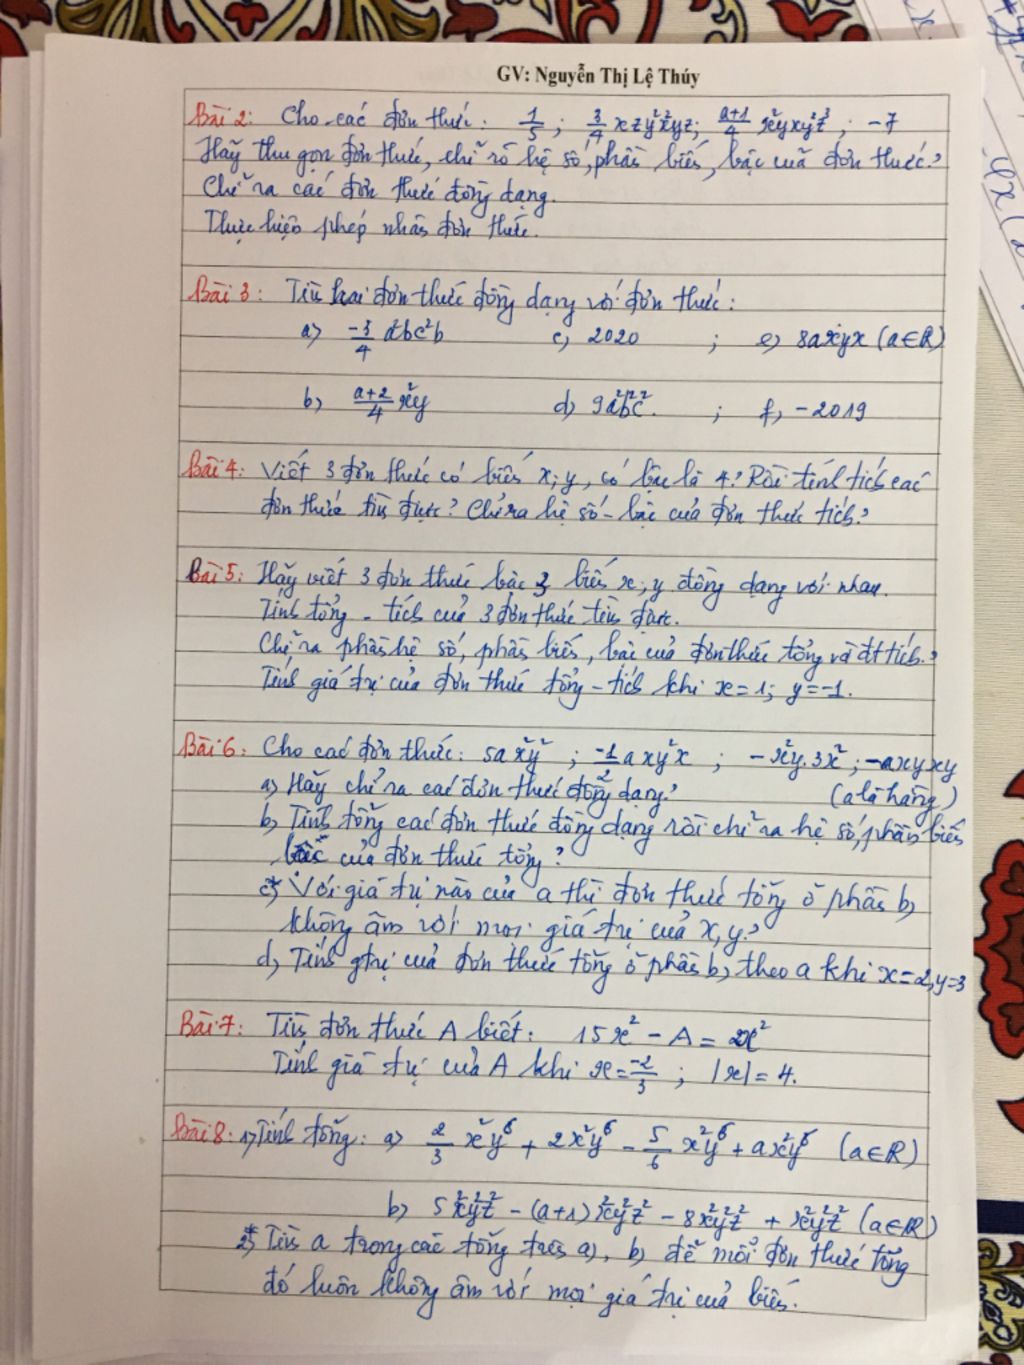 GV: Nguyễn Thị Lệ Thúy
Bài 2: Cho các đơn thức: 1/5 ; 3/4 xzy²x²yz; a+1/4 x²yxy²z³ ; -7
Hãy thu gọn đơn thức, chỉ rõ hệ số, phần biến, bậc của đơn thức?
Chỉ ra các đơn thức đồng dạng.
Thực hiện phép nhân đơn thức.
Bài 3: Tìm hai đơn thức đồng dạng với đơn thức:
a) -3/4 a²bc²b c, 2020 ; e) 8axyx (a∈R)
b) a+2/4 x²y d) 9a²b²c². ; f, -2019
Bài 4: Viết 3 đơn thức có biến x; y, có bậc là 4? Rồi tính tích các
đơn thức tìm được? Chỉ ra hệ số - bậc của đơn thức tích?
Bài 5: Hãy viết 3 đơn thức bậc 3 biến x; y đồng dạng với nhau.
Tính tổng - tích của 3 đơn thức tìm được.
Chỉ ra phần hệ số, phần biến, bậc của đơn thức tổng và đt tích?
Tính giá trị của đơn thức tổng - tích khi x=1; y=-1.
Bài 6: Cho các đơn thức: 5ax²y² ; -1/2 axy²x ; -x²y.3x² ; -axyxy
a) Hãy chỉ ra các đơn thức đồng dạng? (a là hằng)
b, Tính tổng các đơn thức đồng dạng rồi chỉ ra hệ số, phần biến
bậc của đơn thức tổng?
c*) Với giá trị nào của a thì đơn thức tổng ở phần b,
không âm với mọi giá trị của x, y?
d, Tính gtrị của đơn thức tổng ở phần b, theo a khi x=2, y=3
Bài 7: Tìm đơn thức A biết: 15x² - A = 2x²
Tính giá trị của A khi x = -2/3 ; |x| = 4.
Bài 8: 1) Tính tổng: a) 2/3 x²y⁶ + 2x²y⁶ - 5/6 x²y⁶ + ax²y⁶ (a∈R)
b) 5x²y²z² - (a+1)x²y²z² - 8x²y²z² + x²y²z² (a∈R)
2*) Tìm a trong các tổng trên a), b) để mỗi đơn thức tổng
đó luôn không âm với mọi giá trị của biến.